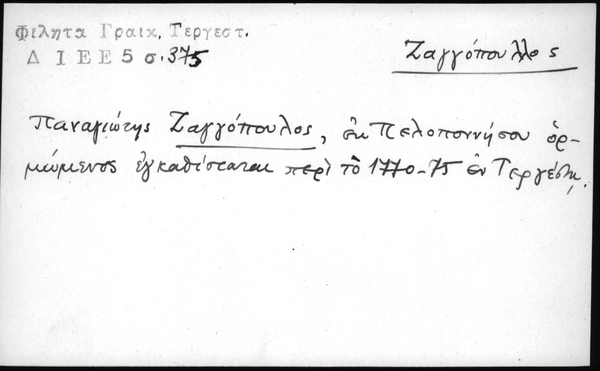 Φιλητα Γραικ, Τεργεστ.
Δ Ι Ε Ε 5 σ. 375
Ζαγγόπουλλος
Παναγιώτης Ζαγγόπουλος, ἐκ Πελοποννήσου ὁρ-
μώμενος ἐγκαθίσταται περὶ τὸ 1770-75 ἐν Τεργέστῃ.